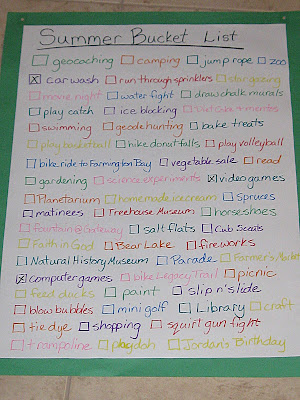 Summer Bucket List
geocaching camping jump rope zoo
car wash run through sprinklers stargazing
movie night water fight draw chalk murals
play catch ice blocking
swimming geode hunting bake treats
play basketball hike donut falls play volleyball
bike ride to Farmington Bay vegetable sale read
gardening science experiments video games
Planetarium homemade icecream Spruces
matinees Treehouse Museum horseshoes
fountain@Gateway salt flats Cub Scouts
Faith in God Bear Lake fireworks
Natural History Museum Parade Farmer's Market
computer games bike Legacy Trail picnic
feed ducks paint slip n' slide
blow bubbles mini golf Library craft
tie dye shopping squirt gun fight
trampoline playdoh Jordan's Birthday